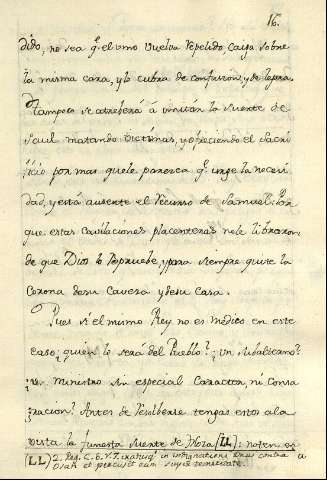 16.
dido, no sea q.e el umo vuelva repelido caiga sobre
la misma cara, y lo cubra de confusion, y de
Tampoco se atreberá á imitar la suerte de
Saul matando Victimas, y ofreciendo el Sacri
ficio por mas que le paresca q.e urge la necesi
dad, y está ausente el recurso de Samuel. Por
que estas Cavilaciones placenteras no le libraron
de que Dios lo repruebe, y para siempre quite la
Corona de su Caveza y de su Casa.
Pues si el mismo Rey no es Medico en este
caso, quien lo será del Pueblo? ¿Un subalterno?
¿un Ministro sin especial Caracter, ni Consa
gracion? Antes de resolberse tengas estos ala
vista la funesta suerte de Hoza (LL): noten
(LL) 2. Reg. C. 6. V. 7. iratusq.e indignatione Dnus contra
Osam et percusit eum super temeritate.